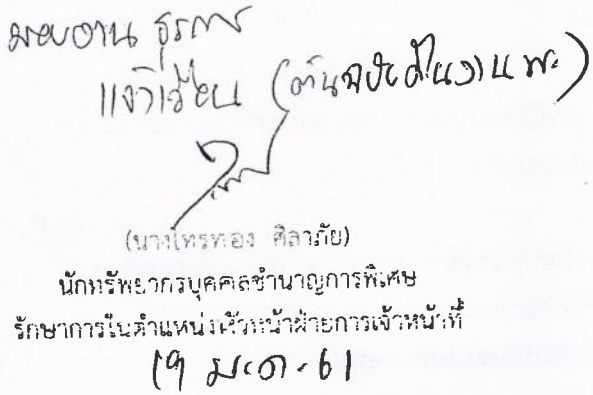 มอบงาน ธุรการ
แจ้งเวียน (ต้นฉบับ
(นางไทรทอง ศิลาภัย)
นักทรัพยากรบุคคลชำนาญการพิเศษ
รักษาการในตำแหน่งหัวหน้าฝ่ายการเจ้าหน้าที่
19 ม.ค. 61